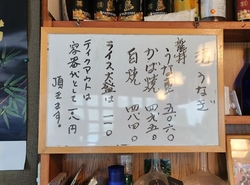 うなぎ
うな重 五〇六〇
かば焼 四九五〇
白焼 四八四〇
ライス大盛は 一一〇
テイクアウトは
容器代として
頂きます。